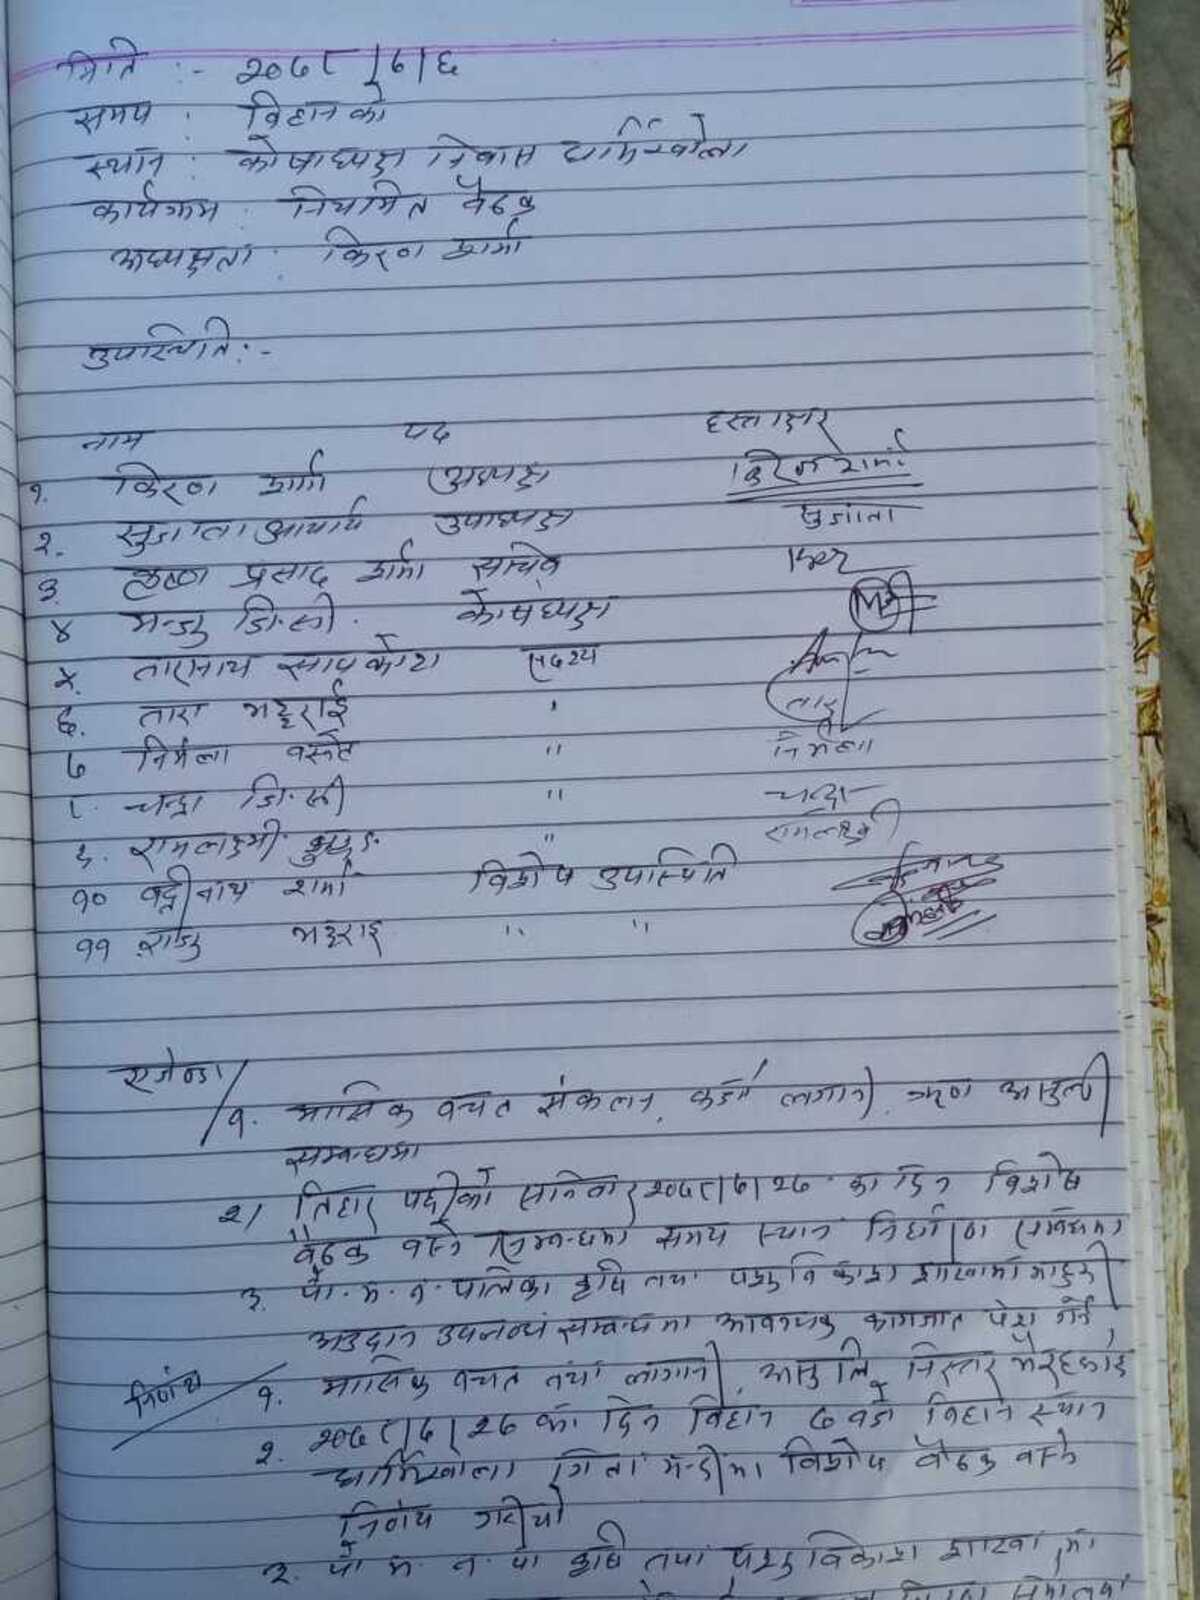 मिति :- २०७८/७/६
समय : विहानको
स्थान : कोषाध्यक्ष निवास धार्मिखोला
कार्यक्रम : नियमित बैठक
अध्यक्षता : किरण शर्मा
उपस्थिति :-
नाम पद हस्ताक्षर
१. किरण शर्मा अध्यक्ष किरण शर्मा
२. सुजाता आचार्य उपाध्यक्ष सुजाता
३. कृष्ण प्रसाद शर्मा सचिव
४ मन्जु जि.सी. कोषध्यक्ष
५. तारानाथ सापकोटा सदस्य
६. तारा भट्टराई " तारा
७ निर्मला वस्नेत " निर्मला
८. चन्द्रा जि.सी " चन्द्रा
९. रामलक्ष्मी " रामलक्ष्मी
१० बद्रीनाथ शर्मा विशेष उपस्थिति
११ राजु भट्टराई " "
एजेण्डा
१. मासिक वचत संकलन, कर्जा लगानी, ऋण असुली
सम्बन्धमा
२। तिहार पछीको सनिवार २०७८/७/२७ का दिन विशेष
बैठक वस्ने सम्बन्धमा समय स्थान निर्धारण सम्बन्धमा
३. पो.म.न.पालिका कृषि तथा पशु विकाश शाखामा
अनुदान उपलव्ध सम्बन्धमा आवश्यक कागजात पेश गर्ने
निर्णय १. मासिक वचत तथा लगानी, असुलि निस्तार भैरहकोछ
२. २०७८/७/२७ का दिन विहान ७ वजे विहान स्थान
धार्मिखोला गिता मन्दीरमा विशेष बैठक वस्ने
निर्णय गरीयो
३. पो म. न. पा कृषि तथा पशु विकाश शाखा मा